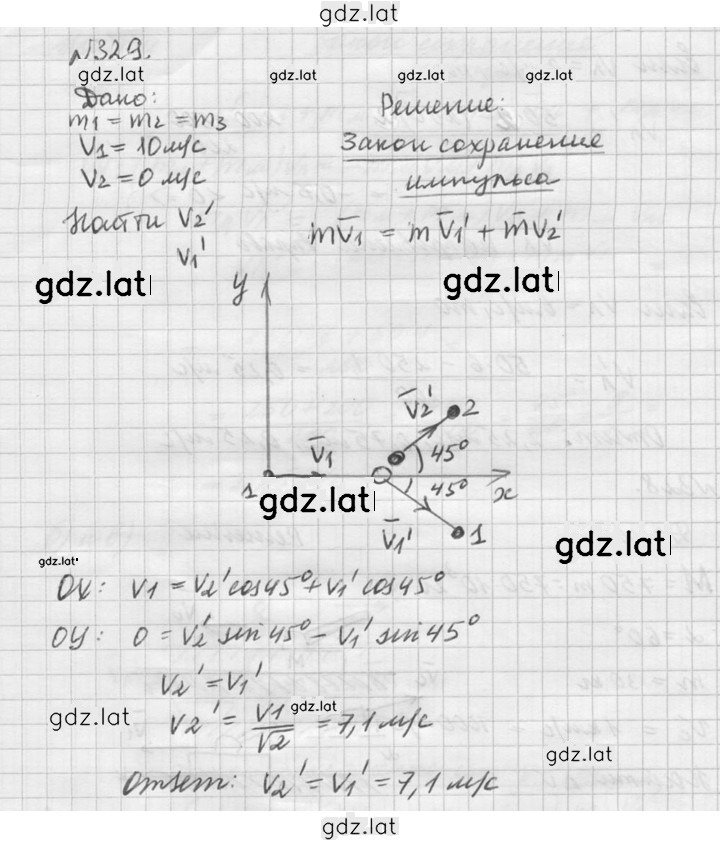 gdz.lat
№329.
gdz.lat gdz.lat gdz.lat gdz.lat
Дано:
m1 = m2 = m3
V1 = 10 м/с
V2 = 0 м/с
Найти V2'
V1'
Решение:
Закон сохранение
импульса
mV̅1 = mV̅1' + m̅V2'
gdz.lat gdz.lat
y
V̅2' 2
V̅1 45°
1 45° x
gdz.lat
V̅1' 1
gdz.lat
gdz.lat
OX: V1 = V2' cos45° + V1' cos45°
OY: 0 = V2' sin45° - V1' sin45°
V2' = V1'
gdz.lat gdz.lat
V2' = V1/√2 = 7,1 м/с
gdz.lat
Ответ: V2' = V1' = 7,1 м/с
gdz.lat